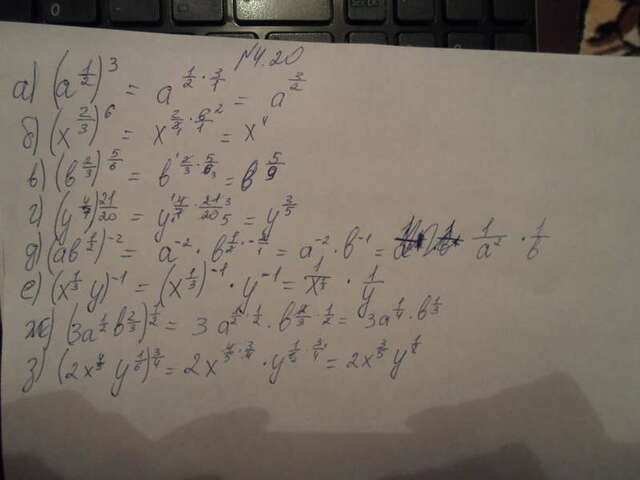 №4.20
а) (a^{1/2})^3 = a^{1/2 · 3/1} = a^{3/2}
б) (x^{2/3})^6 = x^{2/3 · 6/1} = x^4
в) (b^{2/3})^{5/6} = b^{2/3 · 5/6} = b^{5/9}
г) (y^{4/7})^{21/20} = y^{4/7 · 21/20} = y^{3/5}
д) (ab^{1/2})^{-2} = a^{-2} · b^{1/2 · -2/1} = a^{-2} · b^{-1} = 1/a^2 · 1/b
е) (x^{1/3} y)^{-1} = (x^{1/3})^{-1} · y^{-1} = 1/x^{1/3} · 1/y
ж) (3a^{1/2} b^{2/3})^{1/2} = 3a^{1/2 · 1/2} · b^{2/3 · 1/2} = 3a^{1/4} · b^{1/3}
з) (2x^{4/5} y^{1/6})^{3/4} = 2x^{4/5 · 3/4} · y^{1/6 · 3/4} = 2x^{3/5} y